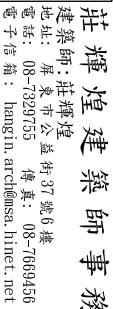 莊輝煌建築師事務
建築師:莊輝煌
地址: 屏東市公益街37號6樓
電話: 08-7329755 傳真: 08-7669456
電子信箱: hangin.arch@msa.hinet.net